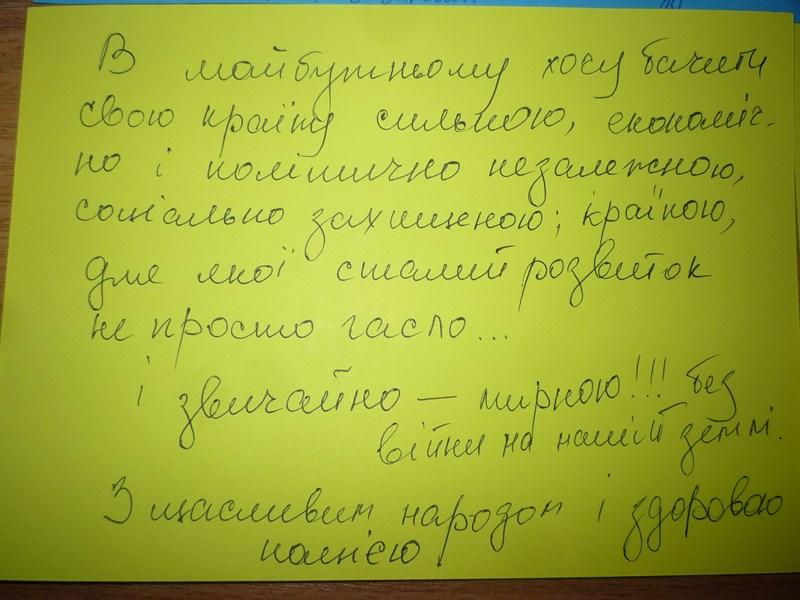 В майбутньому хочу бачити
свою країну сильною, економіч-
но і політично незалежною,
соціально захищеною; країною,
для якої сталий розвиток
не просто гасло...
і звичайно — мирною!!! без
війни на нашій землі.
З щасливим народом і здоровою
нацією